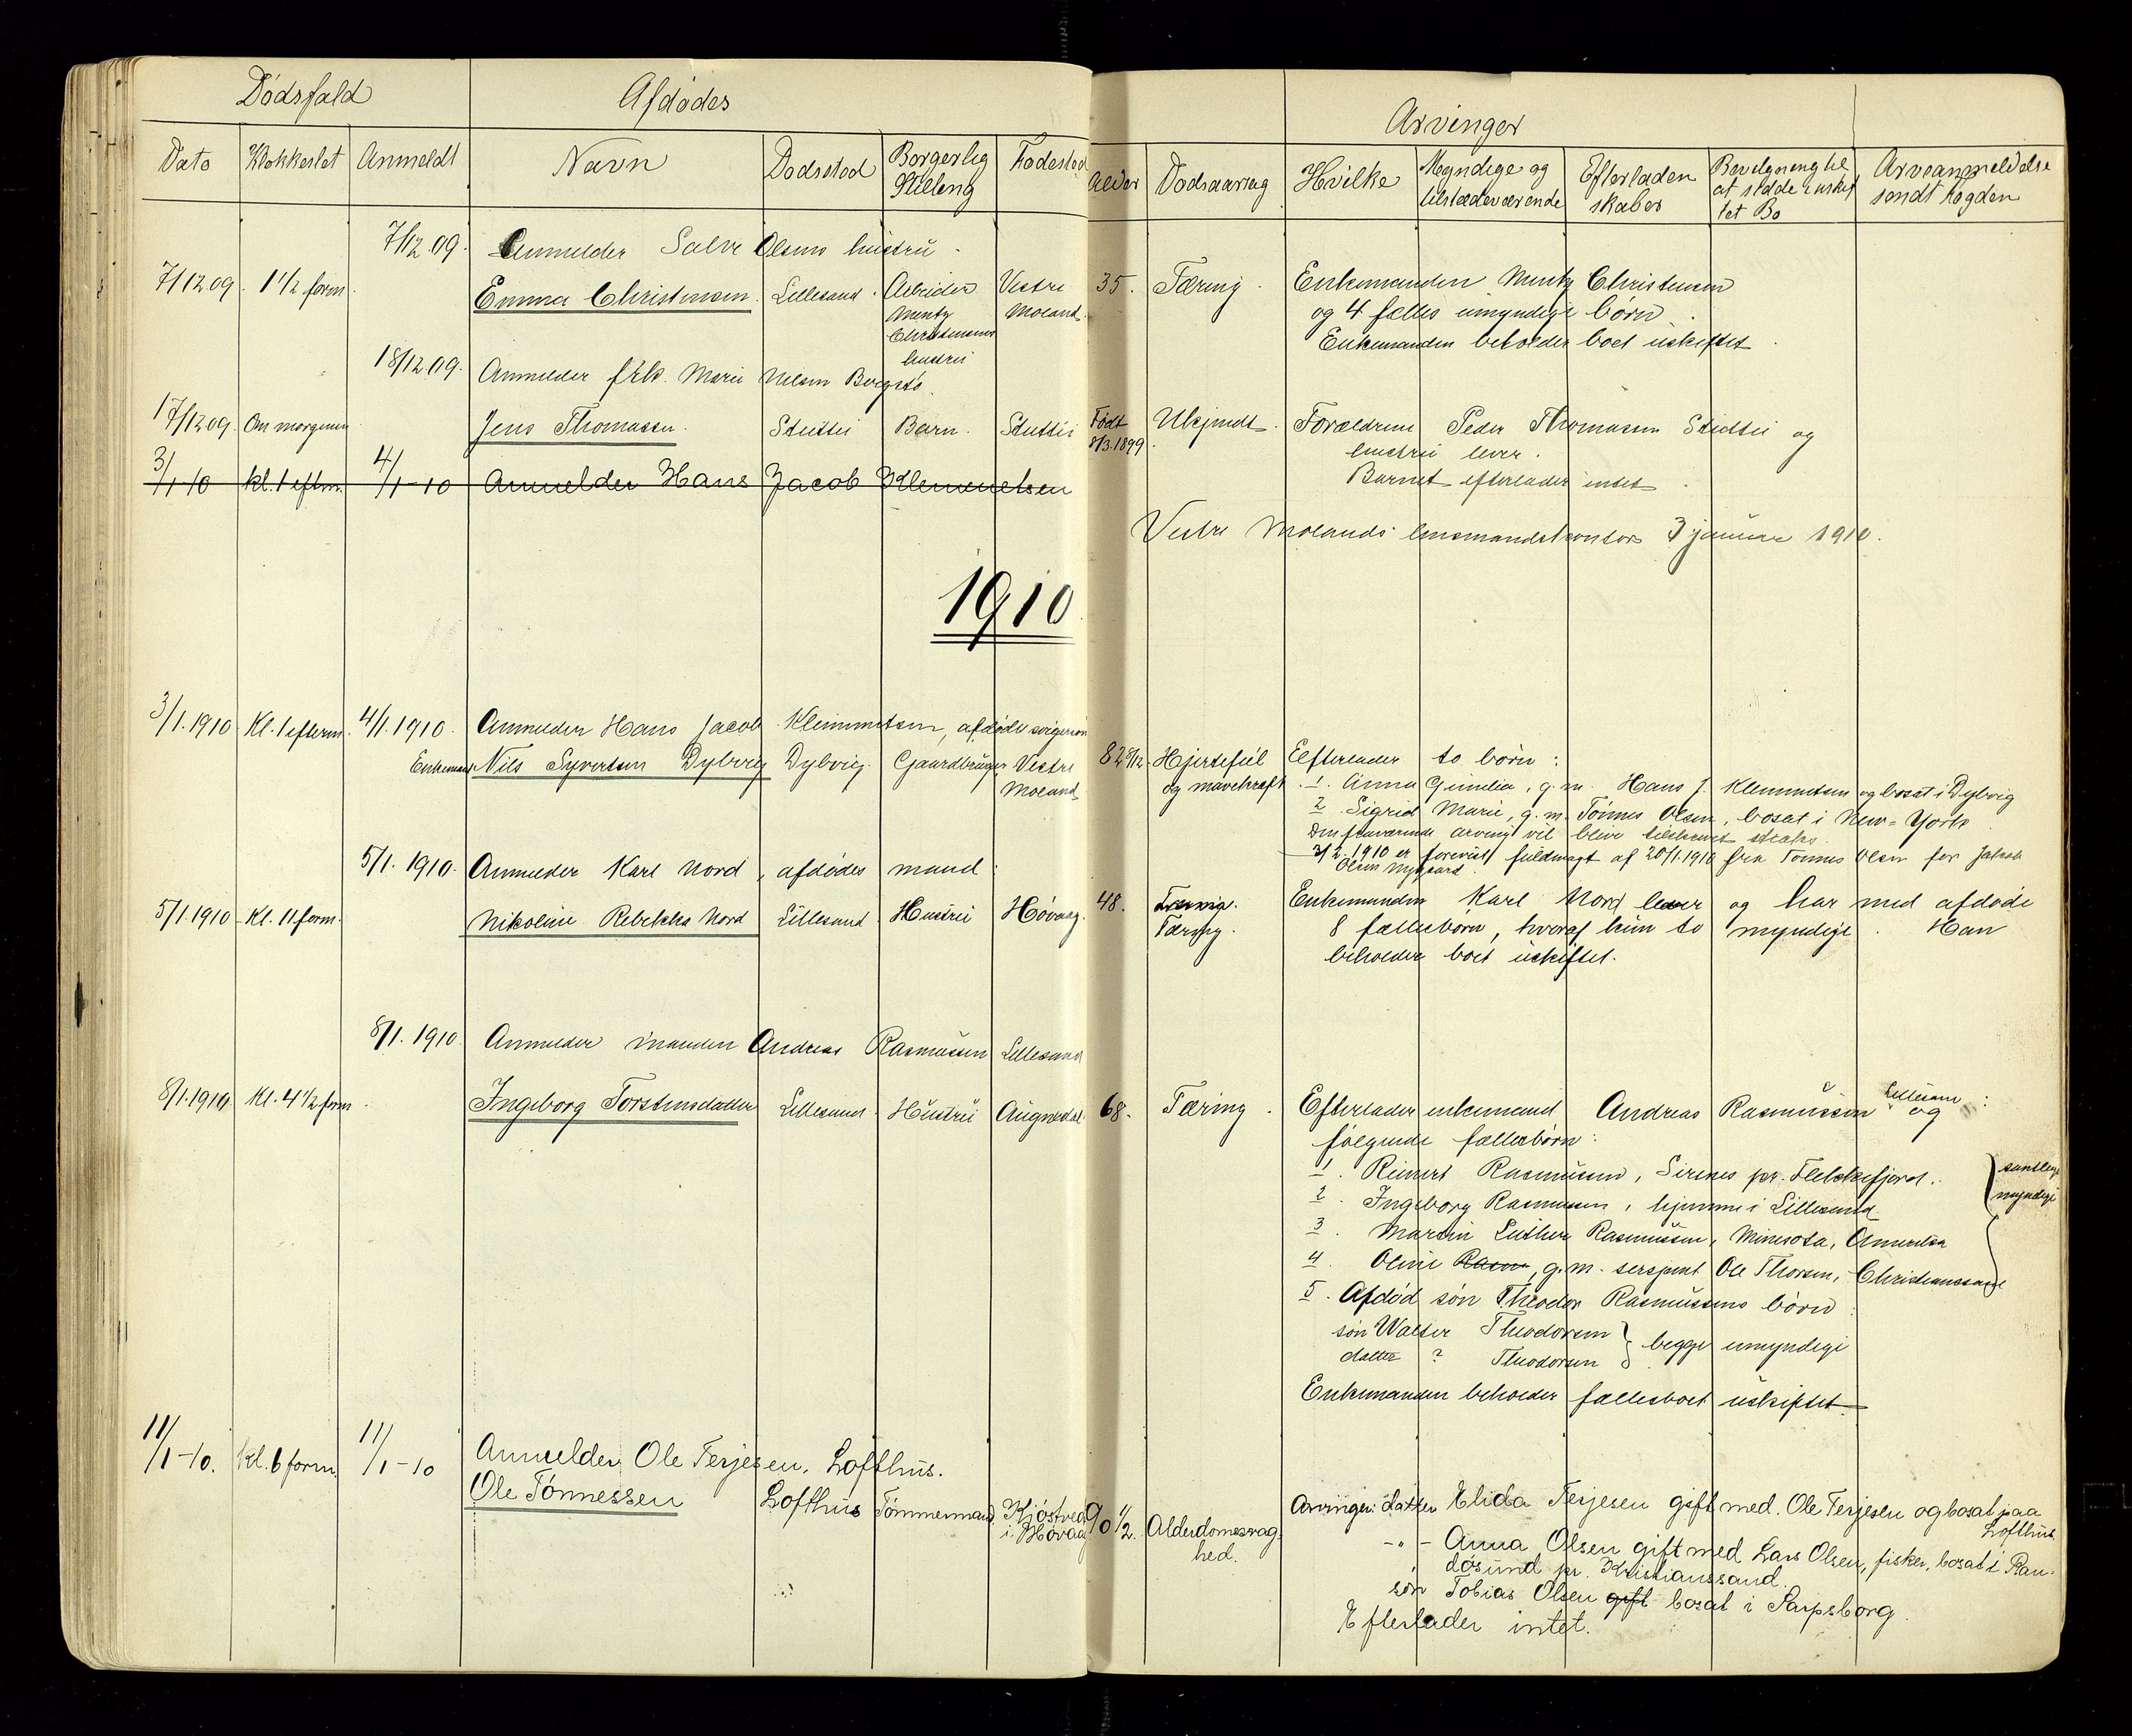 Dødsfald
Afdødes
Arvinger
Dato
Klokkeslet
Anmeldt
Navn
Dødssted
Borgerlig Stilling
Fødested
Alder
Dødsaarsag
Hvilke
Myndige og tilstedeværende
Efterladenskaber
Bevilgning til at sidde i uskiftet Bo
Arveanmeldelse sendt fogden
7/12 09. Anmelder Salve Olsens hustru.
7/12 09. 1 1/2 form. Emma Christensen. Lillesand. Arbeider Vestre 35. Tæring. Enkemanden Mentz Christensen
Mentz Moland. og 4 fælles umyndige børn.
Christensens Enkemanden beholder boet uskiftet.
hustru
18/12 09. Anmelder frk. Marie Nilsen Bergstø.
17/12 09. Om morgenen Jens Thomassen. Stuttei Barn. Stuttei Født 8/3.1899 Ukjendt. Forældrene Peder Thomassen Stuttei og
hustru lever.
3/1-10 kl. 1 eftm. 4/1-10 Anmelder Hans Jacob Klemmetsen Barnet efterlader intet.
Vestre Molands lensmandskontor 3 januar 1910.
1910.
3/1.1910 Kl. 1 efterm. 4/1.1910. Anmelder Hans Jacob Klemmetsen, afdødes svigersøn
Enkemand Nils Syvertsen Dybvig Dybvig. Gaardbruger Vestre 82 8/12. Hjertefeil Efterlader to børn:
Moland. og mavekræft. 1. Anna Gunilia, g.m. Hans J. Klemmetsen og bosat i Dybvig
2 Sigrid Marie, g.m. Tønnes Olsen, bosat i New-York
Den fraværende arving vil blive tilskrevet straks.
3/2.1910 er forevist fuldmagt af 20/1.1910 fra Tønnes Olsen for Jakob
Olsen Nygaard.
5/1.1910. Anmelder Karl Nord, afdødes mand:
5/1.1910 Kl. 11 form. Nikoline Rebekka Nord Lillesand Hustru Høvaag. 48. Tæring. Enkemanden Karl Nord lever og har med afdøde
Tæring. 8 fællesbørn, hvoraf kun to myndige. Han
beholder boet uskiftet.
8/1.1910 Anmelder manden Andreas Rasmussen Lillesand
8/1.1910 Kl. 4 1/2 form. Ingeborg Torstensdatter Lillesand. Hustru Augnedal 68. Tæring. Efterlader enkemand Andreas Rasmussen Lillesand og
følgende fællesbørn:
1. Reinert Rasmussen, Sirnes pr. Flekkefjord.
2. Ingeborg Rasmussen, hjemme i Lillesand
3. Martin Luther Rasmussen, Minesota, Amerika
4. Oline Rasm, g.m. sersjant Ole Thorsen, Christianssand
samtlige
myndige
5. Afdød søn Theodor Rasmussens børn:
søn Walter Theodorsen
datter ? Theodorsen begge umyndige
Enkemanden beholder fællesboet uskiftet.
11/1-10. Kl. 6 form. 11/1-10 Anmelder Ole Terjesen, Lofthus.
Ole Tønnessen Lofthus Tømmermand. Kjøstvedt i Høvaag 90 1/2. Alderdomssvaghed. Arvinger: datter Elida Terjesen gift med Ole Terjesen og bosat paa
Lofthus.
-"- Anna Olsen gift med Lars Olsen, fisker, bosat i Ran-
døsund pr. Kristianssand.
søn Tobias Olsen gift bosat i Sarpsborg.
Efterlader intet.